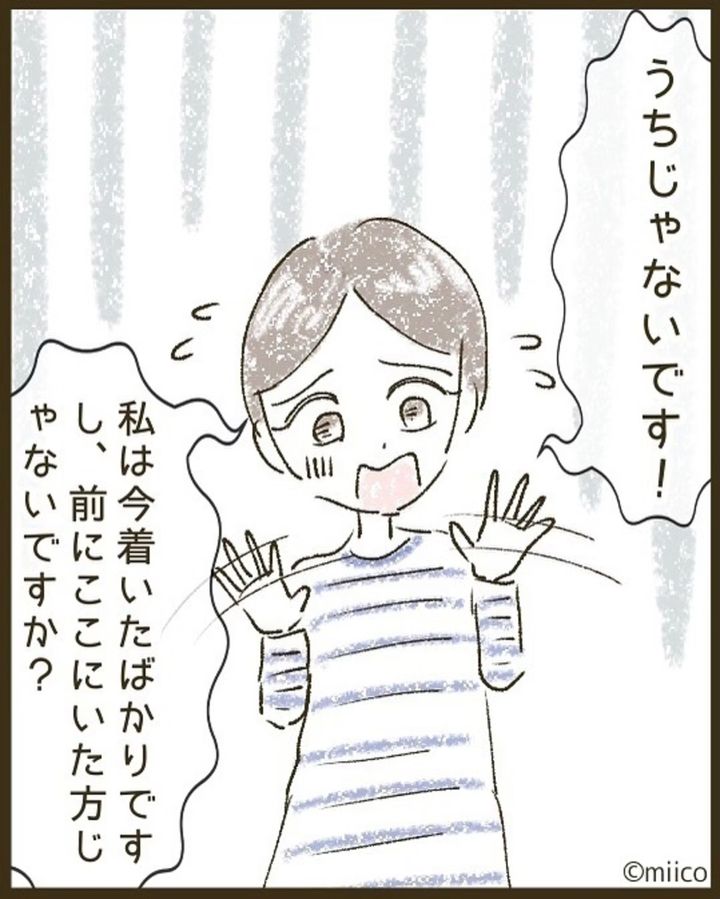 うちじゃないです！
私は今着いたばかりです
し、前にここにいた方じ
ゃないですか？
©miico